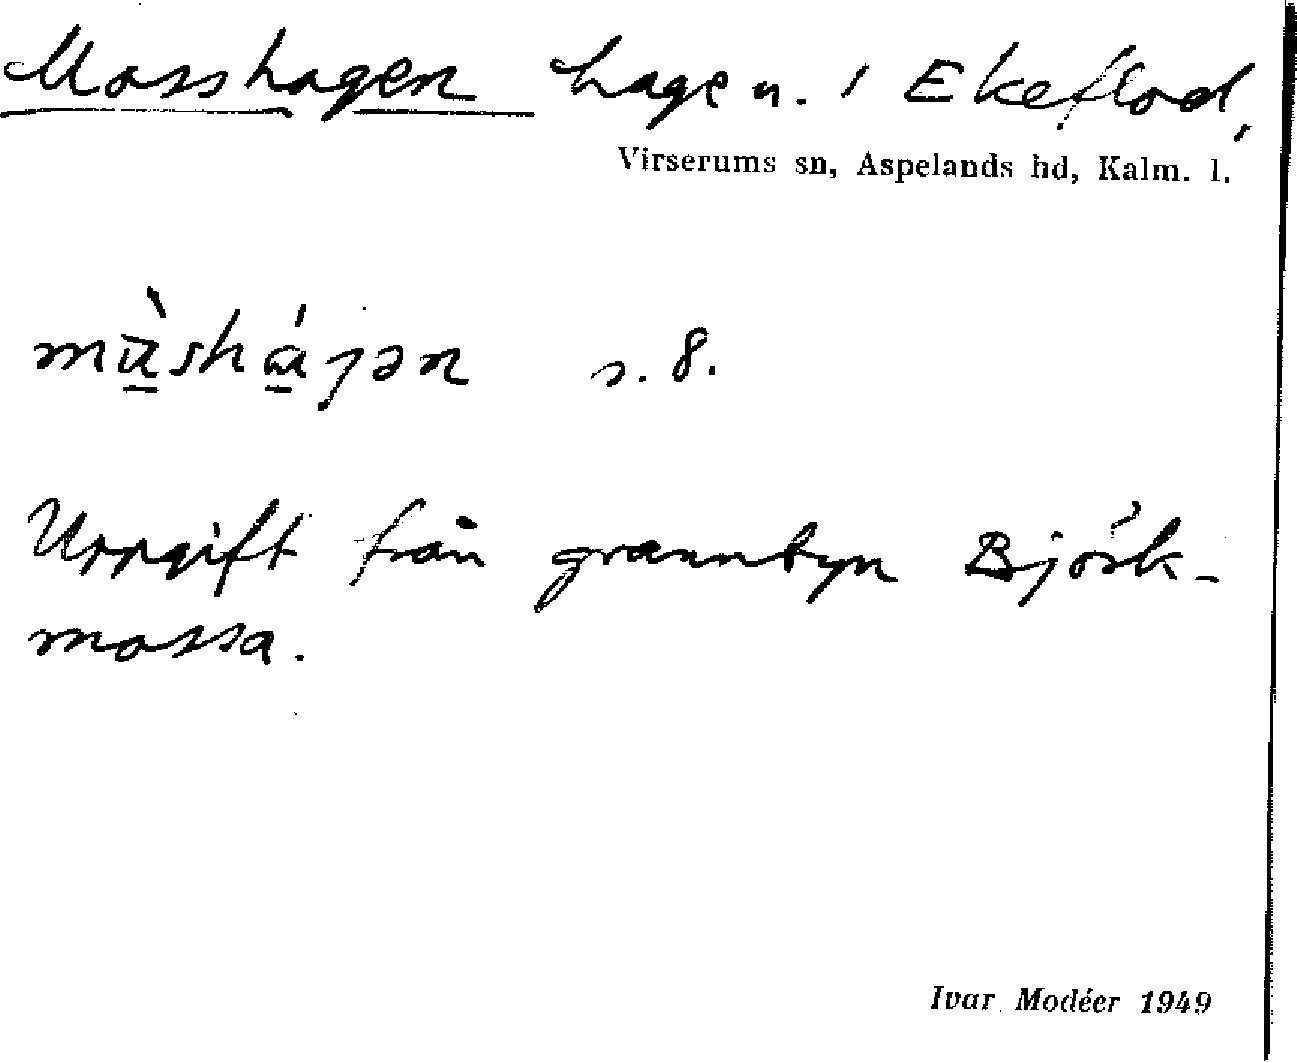 Mosshagen hage n. i Ekeflod,
Virserums sn, Aspelands hd, Kalm. l.
s. 8.
Uppgift från grannbyn Björk-
mossa.
Ivar Modéer 1949